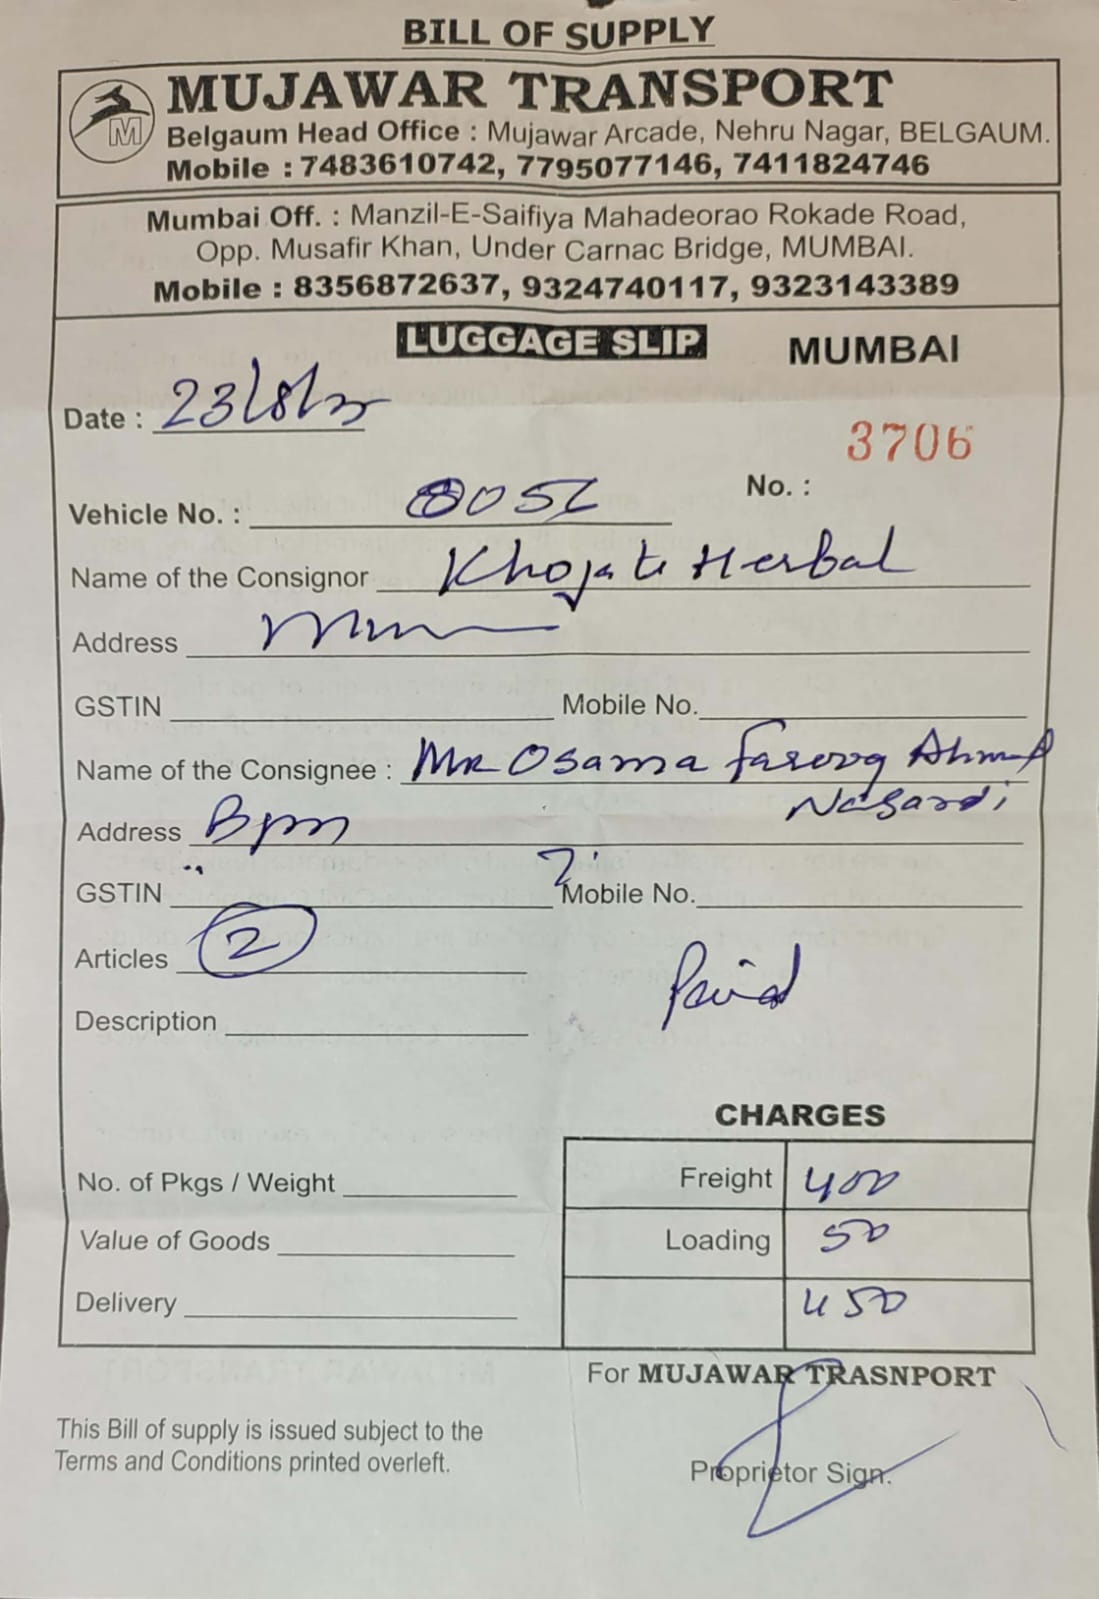 BILL OF SUPPLY
M
MUJAWAR TRANSPORT
Belgaum Head Office : Mujawar Arcade, Nehru Nagar, BELGAUM.
Mobile : 7483610742, 7795077146, 7411824746
Mumbai Off. : Manzil-E-Saifiya Mahadeorao Rokade Road,
Opp. Musafir Khan, Under Carnac Bridge, MUMBAI.
Mobile : 8356872637, 9324740117, 9323143389
LUGGAGE SLIP MUMBAI
Date : 23/8/
3706
No. :
Vehicle No. :
Name of the Consignor Khojati Herbal
Address
GSTIN Mobile No.
Name of the Consignee : Mr Osama Farooq Ahmed
Nagardi
Address Bpm
GSTIN Mobile No.
Articles 2
Paid
Description
CHARGES
No. of Pkgs / Weight Freight 400
Value of Goods Loading 50
Delivery 450
For MUJAWAR TRASNPORT
This Bill of supply is issued subject to the
Terms and Conditions printed overleft.
Proprietor Sign.